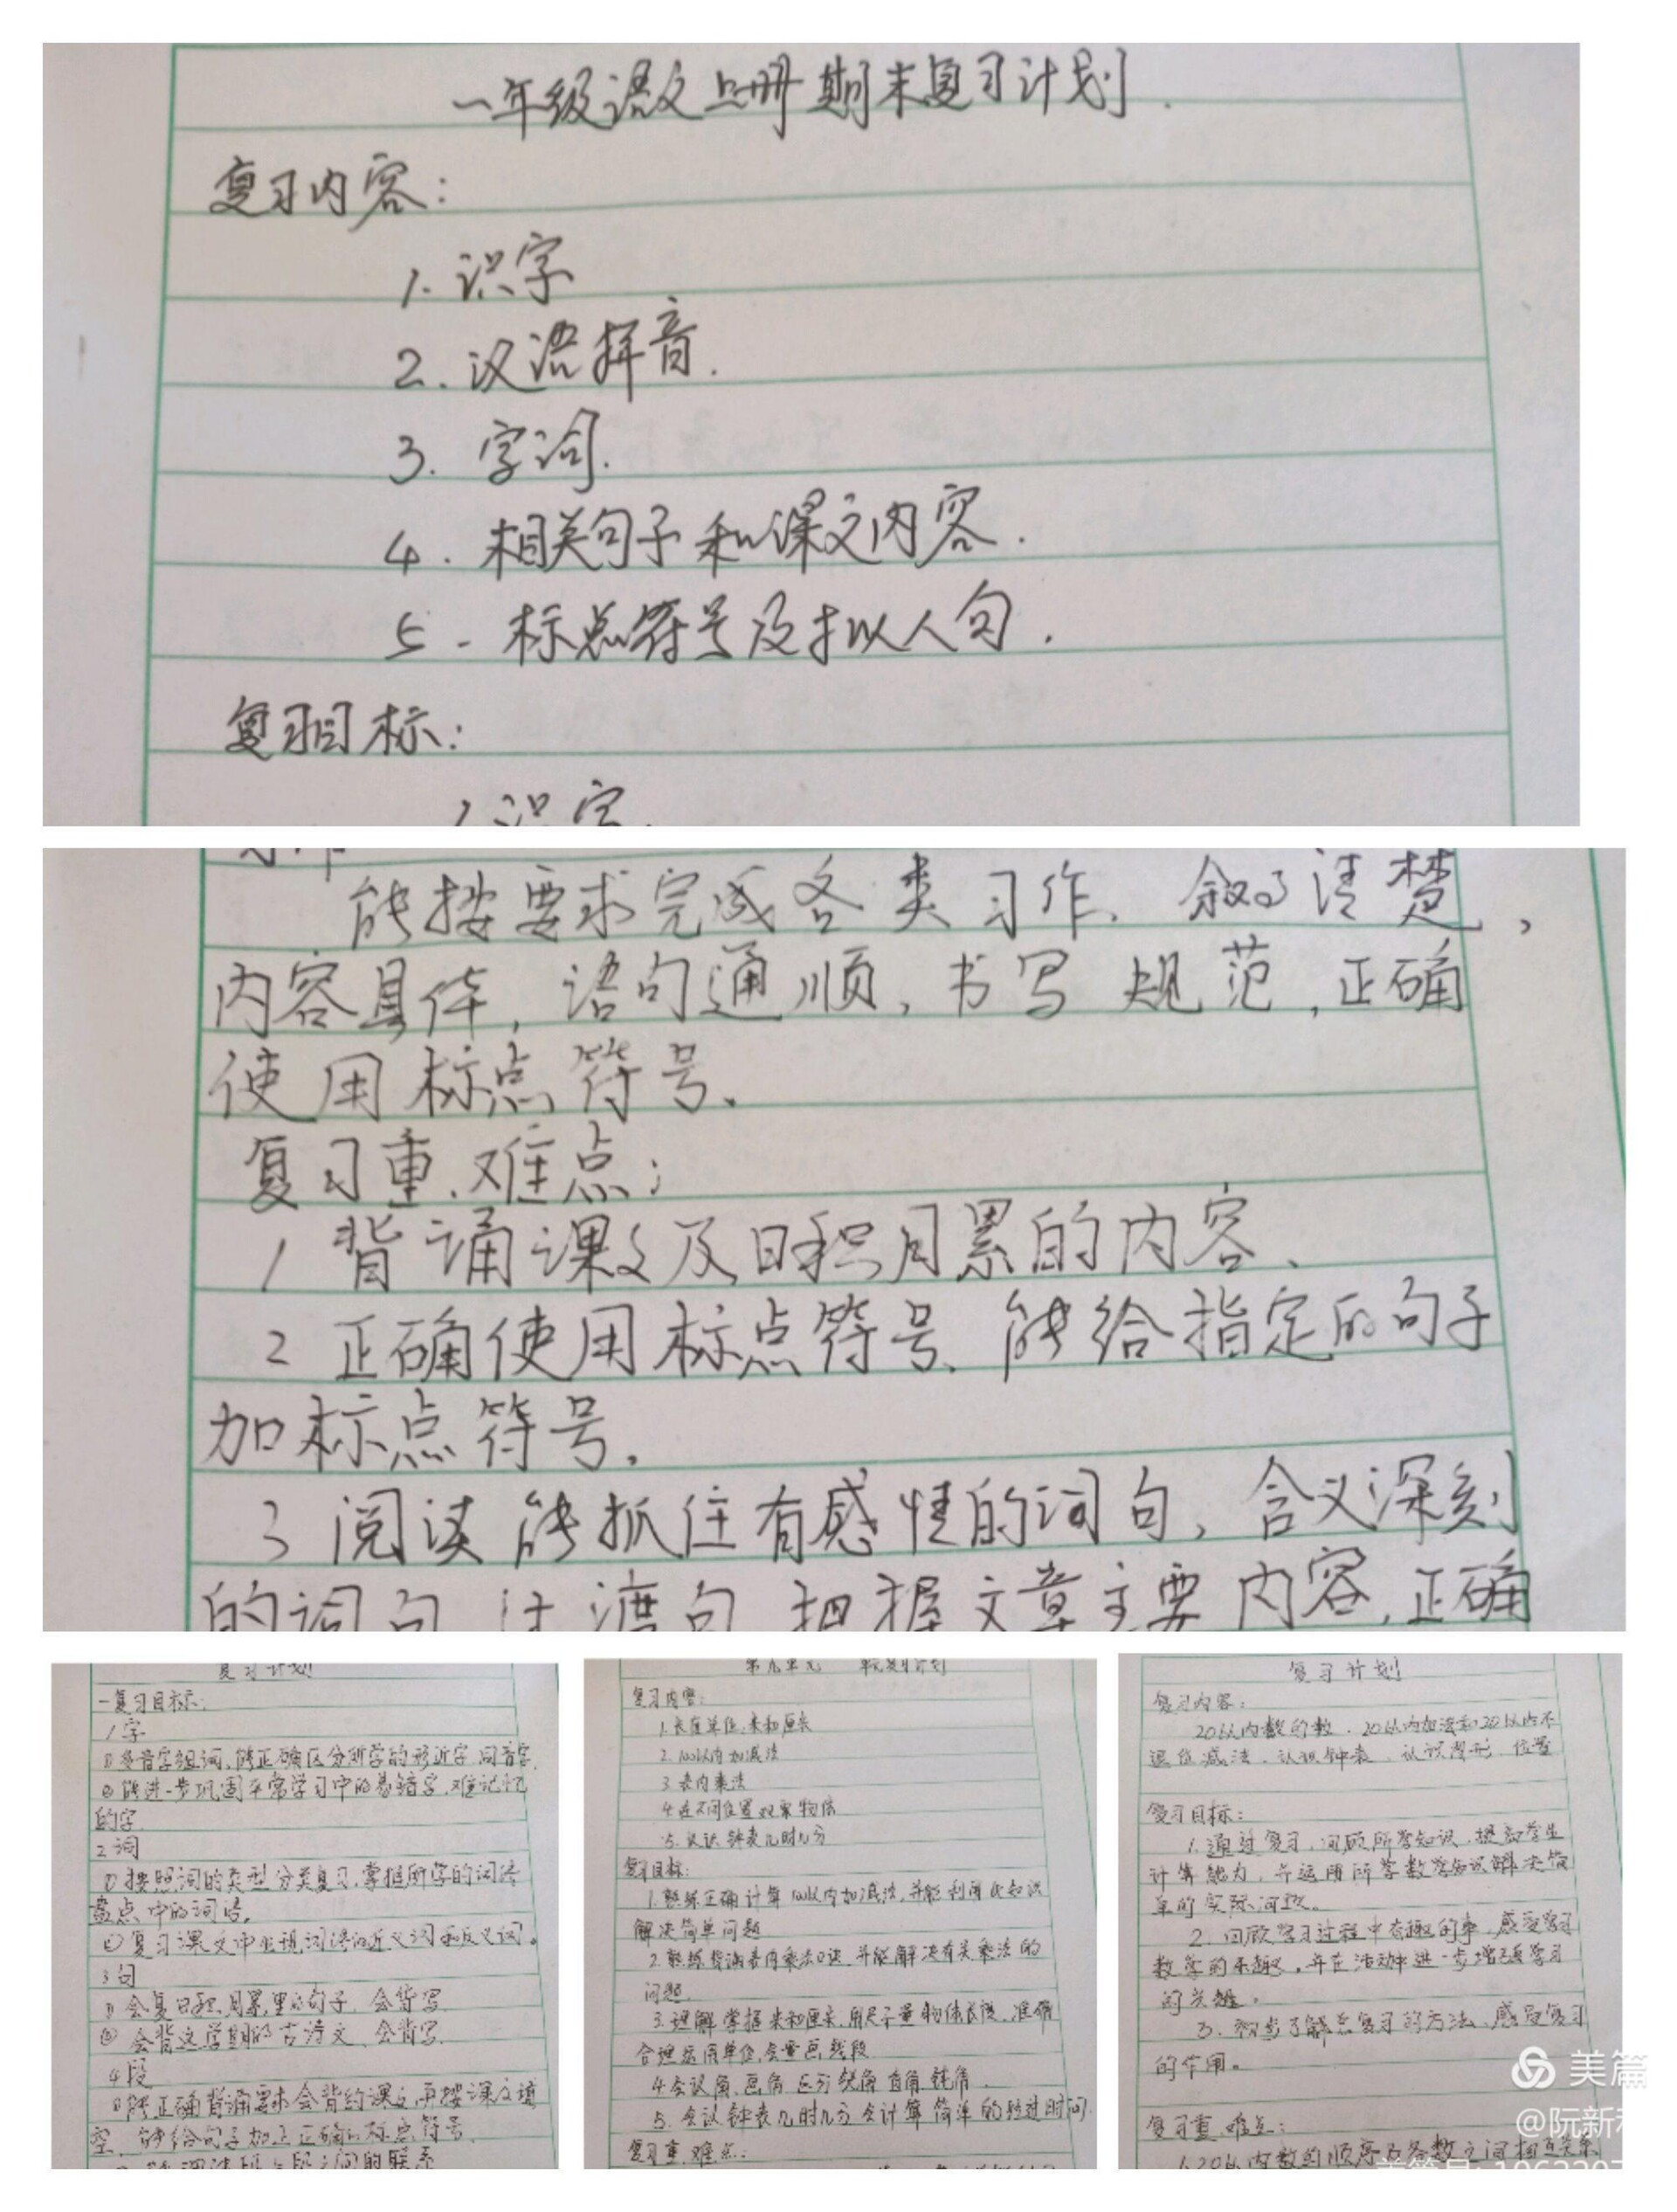 一年级语文上册期末复习计划.
复习内容:
1.识字
2.汉语拼音.
3.字词.
4.相关句子和课文内容.
5.标点符号及拟人句.
复习目标:
1.识字.
能按要求完成各类习作、叙事清楚,
内容具体,语句通顺,书写规范,正确
使用标点符号。
复习重、难点:
1 背诵课文及日积月累的内容、
2 正确使用标点符号、能给指定的句子
加标点符号。
3 阅读能抓住有感情的词句,含义深刻
的词句 过渡句 把握文章主要内容,正确
复习计划
一复习目标:
1字
①多音字组词,能正确区分所学的形近字、同音字.
②能进一步巩固平常学习中的易错字、难记忆
的字
2词
①按照词的类型分类复习,掌握所学的词语
盘点中的词语。
②复习课文中出现词语的近义词和反义词。
3句
①会复日积月累里的句子、会背写
②会背这学期的古诗文、会背写.
4段
①能正确背诵要求会背的课文,再按课文填
空、能给句子加上正确的标点符号、
段与段之间的联系
第九单元 单元复习计划
复习内容:
1.长度单位,米和厘米
2.100以内加减法
3.表内乘法
4.在不同位置观察物体
5.认识钟表几时几分
复习目标:
1.熟练正确计算100以内加减法,并能利用此知识
解决简单问题
2.熟练背诵表内乘法口诀,并能解决有关乘法的
问题.
3.理解掌握米和厘米,用尺子量物体长度,准确
合理运用单位,会量画线段
4.会认角、画角 区分锐角 直角 钝角.
5.会认钟表几时几分 会计算简单的经过时间.
复习重、难点:
复习计划
复习内容:
20以内数的数、20以内加法和20以内不
退位减法、认识钟表、认识图形、位置
复习目标:
1.通过复习,回顾所学知识,提高学生
计算能力,并运用所学数学知识解决简
单的实际问题。
2.回顾学习过程中有趣的事,感受学习
数学的乐趣。并在活动中进一步增强学习
的兴趣。
3.初步了解总复习的方法,感受复习
的作用。
复习重、难点:
1.20以内数的顺序及各数之间相互关系
美篇
@阮新